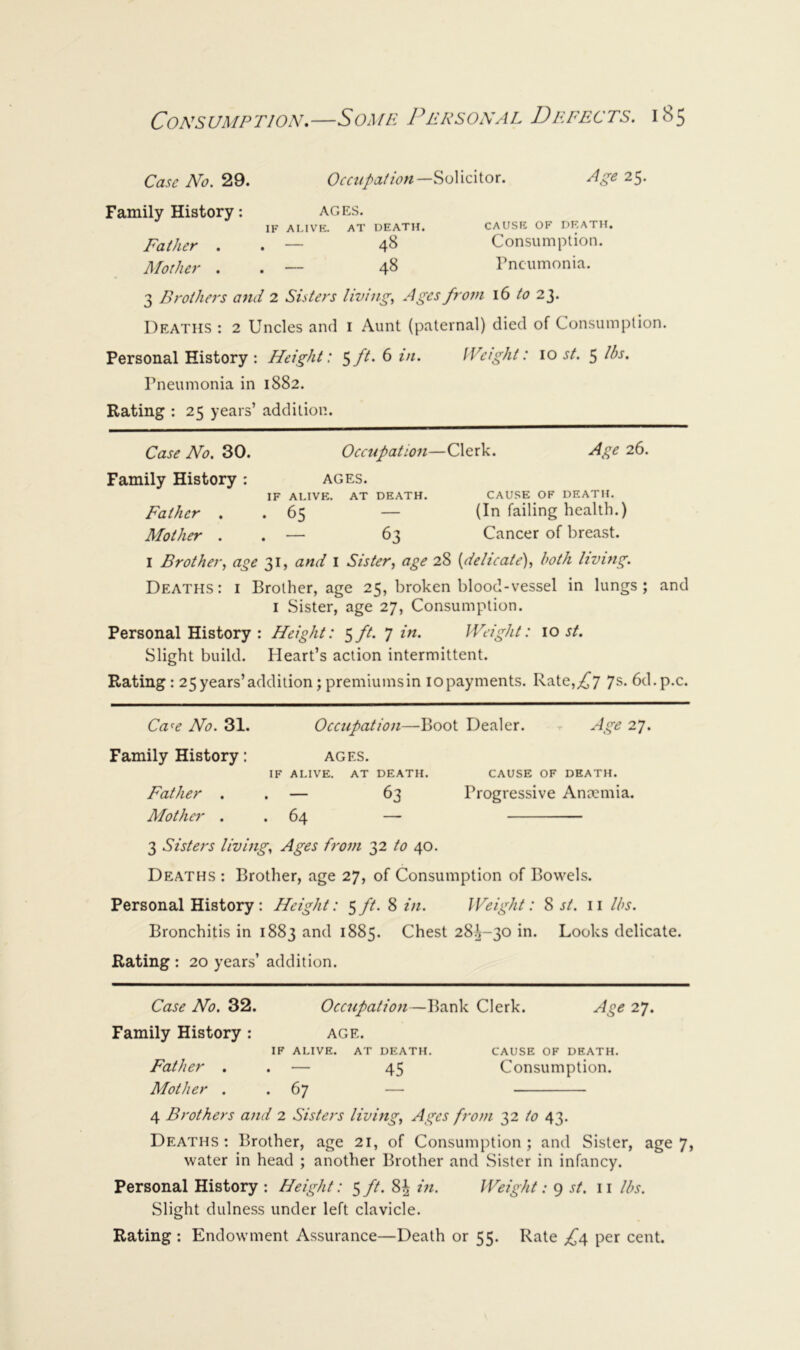 CONSUMPTION.—SOME PERSONAL DEFECTS. 185
Case No. 29. Occupation—Solicitor. Age 25.
Family History: AGES.
IF ALIVE. AT DEATH. CAUSE OF DEATH.
Father . . — 48 Consumption.
Mother . . — 48 Pneumonia.
3 Brothers and 2 Sisters living, Ages from 16 to 23.
DEATHS : 2 Uncles and 1 Aunt (paternal) died of Consumption.
Personal History : Height: 5 ft. 6 in. Weight: 10 st. 5 lbs.
Pneumonia in 1882.
Rating : 25 years’ addition.
Case No. 30. Occupation—Clerk. Age 26.
Family History : AGES.
IF ALIVE. AT DEATH. CAUSE OF DEATH.
Father . . 65 — (In failing health.)
Mother . . — 63 Cancer of breast.
1 Brother, age 31, and 1 Sister, age 28 (delicate), both living.
DEATHS: 1 Brother, age 25, broken blood-vessel in lungs ; and
1 Sister, age 27, Consumption.
Personal History : Height: 5 ft. 7 in. Weight: 10 st.
Slight build. Heart’s action intermittent.
Rating : 25 years’ addition ; premiums in 10 payments. Rate, £7 7s. 6d. p.c.
Case No. 31. Occupation—Boot Dealer. Age 27.
Family History: AGES.
IF ALIVE. AT DEATH. CAUSE OF DEATH.
Father . . — 63 Progressive Anæmia.
Mother . . 64 — ———
3 Sisters living, Ages from 32 to 40.
DEATHS : Brother, age 27, of Consumption of Bowels.
Personal History : Height: 5 ft. 8 in. Weight: 8 st. 11 lbs.
Bronchitis in 1883 and 1885. Chest 28½–30 in. Looks delicate.
Rating : 20 years’ addition.
Case No. 32. Occupation—Bank Clerk. Age 27.
Family History : AGE.
IF ALIVE. AT DEATH. CAUSE OF DEATH.
Father . . — 45 Consumption.
Mother . . 67 — ———
4 Brothers and 2 Sisters living, Ages from 32 to 43.
DEATHS : Brother, age 21, of Consumption ; and Sister, age 7,
water in head ; another Brother and Sister in infancy.
Personal History : Height: 5 ft. 8½ in. Weight: 9 st. 11 lbs.
Slight dulness under left clavicle.
Rating : Endowment Assurance—Death or 55. Rate £4 per cent.